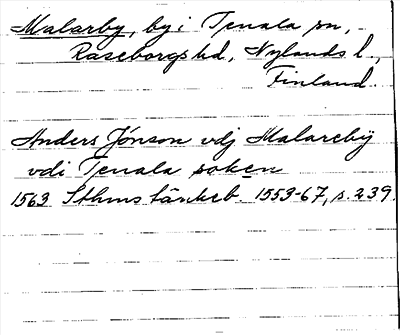 Malarby, by i Tenala sn,
Raseborgs hd, Nylands l.,
Finland.
Anders Jónson vdj Malareby
vdi Tenala soken
1563 Sthms tänkeb. 1553-67, s. 239.